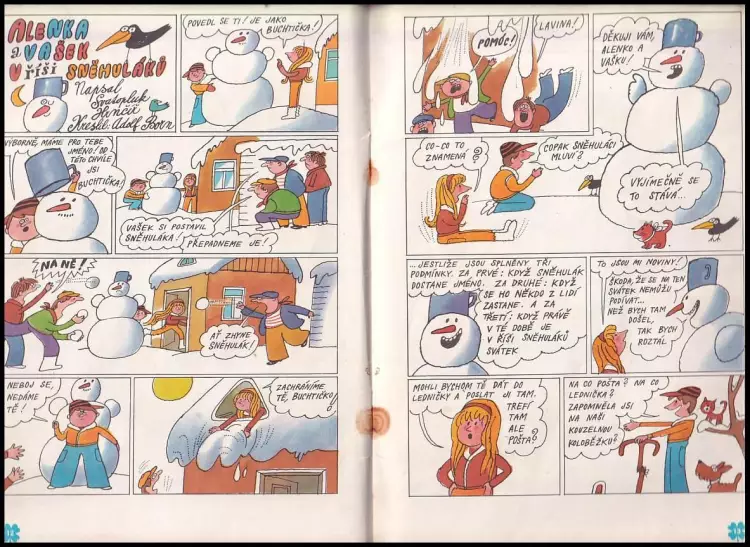 ALENKA
a VAŠEK
V ŘÍŠI SNĚHULÁKŮ
Napsal
Svatopluk
Hrnčíř
Kreslil: Adolf Born
POVEDL SE TI! JE JAKO
BUCHTIČKA!
VÝBORNĚ, MÁME PRO TEBE
JMÉNO! OD
TÉTO CHVÍLE
JSI
BUCHTIČKA!
VAŠEK SI POSTAVIL
SNĚHULÁKA!
PŘEPADNEME JE!
NA NĚ!
AŤ ZHYNE
SNĚHULÁK!
NEBOJ SE,
NEDÁME
TĚ!
ZACHRÁNÍME
TĚ, BUCHTIČKO!
POMÓC!
LAVINA!
DĚKUJI VÁM,
ALENKO A
VAŠKU!
CO-CO TO
ZNAMENÁ?
COPAK SNĚHULÁCI
MLUVÍ?
VYJÍMEČNĚ SE
TO STÁVÁ...
...JESTLIŽE JSOU SPLNĚNY TŘI
PODMÍNKY. ZA PRVÉ: KDYŽ SNĚHULÁK
DOSTANE JMÉNO. ZA DRUHÉ: KDYŽ
SE HO NĚKDO Z LIDÍ
ZASTANE. A ZA
TŘETÍ: KDYŽ PRÁVĚ
V TÉ DOBĚ JE
V ŘÍŠI SNĚHULÁKŮ
SVÁTEK
TO JSOU MI NOVINY!
ŠKODA, ŽE SE NA TEN
SVÁTEK NEMŮŽU
PODÍVAT...
NEŽ BYCH TAM
DOŠEL,
TAK BYCH
ROZTÁL
MOHLI BYCHOM TĚ DÁT DO
LEDNIČKY A POSLAT JI TAM.
TREFÍ
TAM
ALE
POŠTA?
NA CO POŠTA? NA CO
LEDNIČKA?
ZAPOMNĚLA JSI
NA NAŠI
KOUZELNOU
KOLOBĚŽKU?